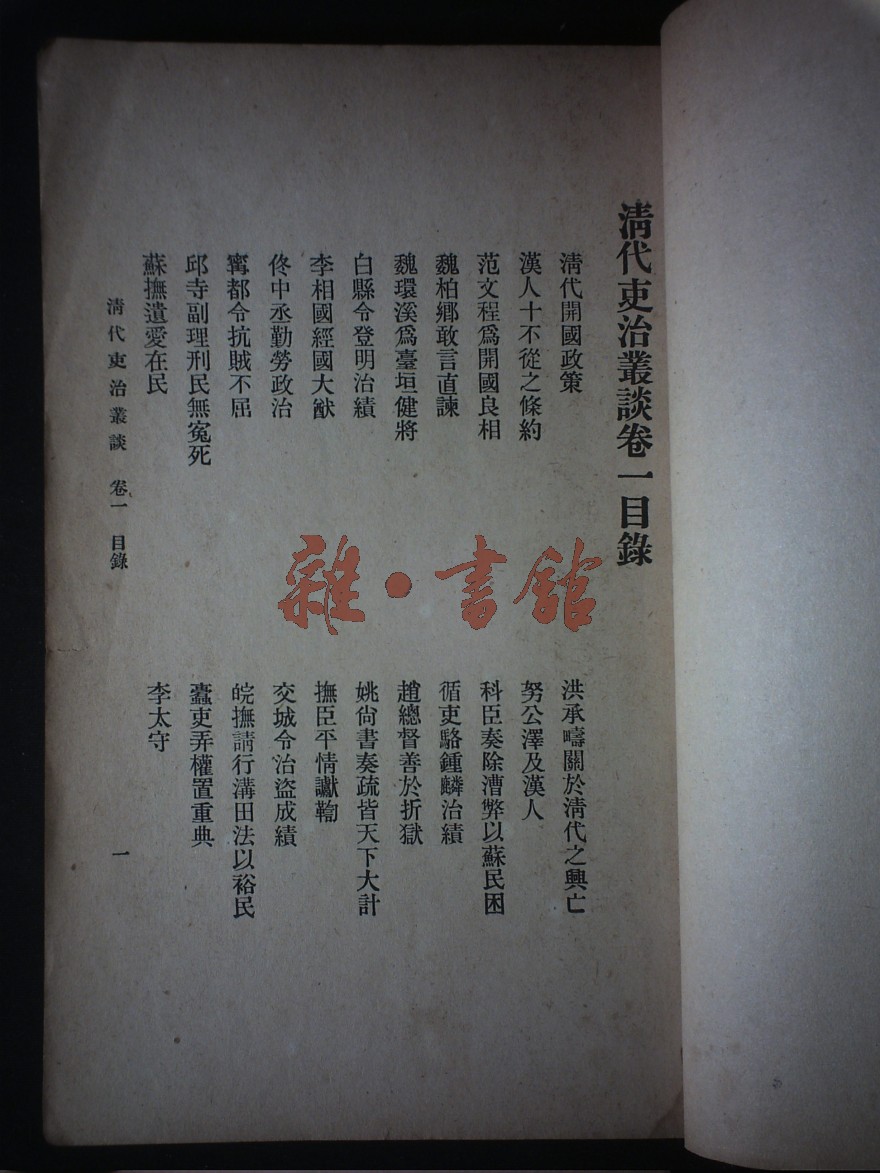 清代吏治叢談卷一目錄
清代開國政策
洪承疇關於清代之興亡
漢人十不從之條約
努公澤及漢人
范文程爲開國良相
科臣奏除漕弊以蘇民困
魏柏鄉敢言直諫
循吏駱鍾麟治績
魏環溪爲臺垣健將
趙總督善於折獄
白縣令登明治績
姚尙書奏疏皆天下大計
李相國經國大猷
撫臣平情讞鞫
佟中丞勤勞政治
交城令治盜成績
寗都令抗賊不屈
皖撫請行溝田法以裕民
邱寺副理刑民無寃死
蠹吏弄權置重典
蘇撫遺愛在民
李太守
清代吏治叢談 卷一 目錄
一
雜·書館